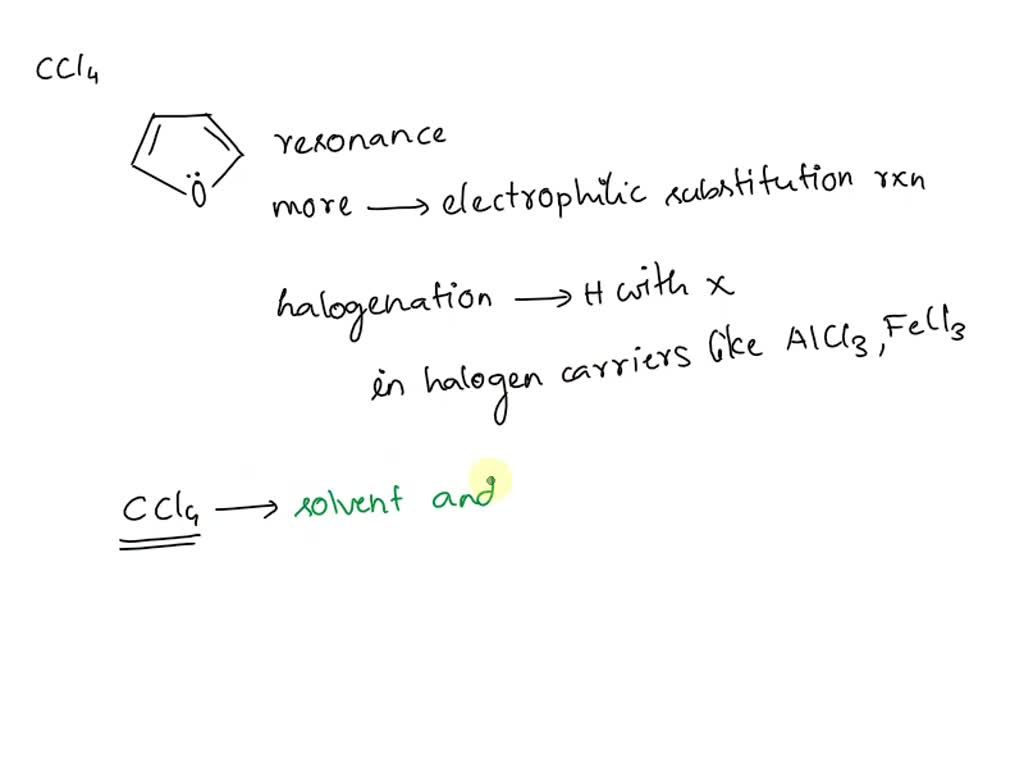 CCl4
Ö
resonance
more → electrophilic substitution rxn
halogenation → H with x
in halogen carriers like AlCl3, FeCl3
CCl4 → solvent and